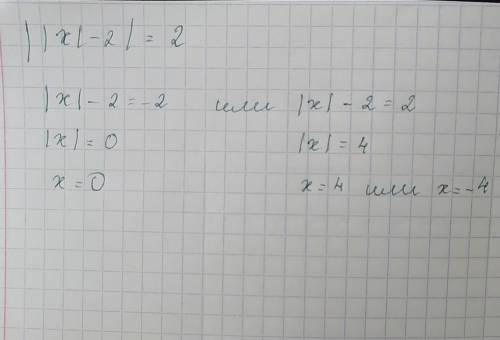 ||x|-2| = 2
|x| - 2 = -2 или |x| - 2 = 2
|x| = 0 |x| = 4
x = 0 x = 4 или x = -4